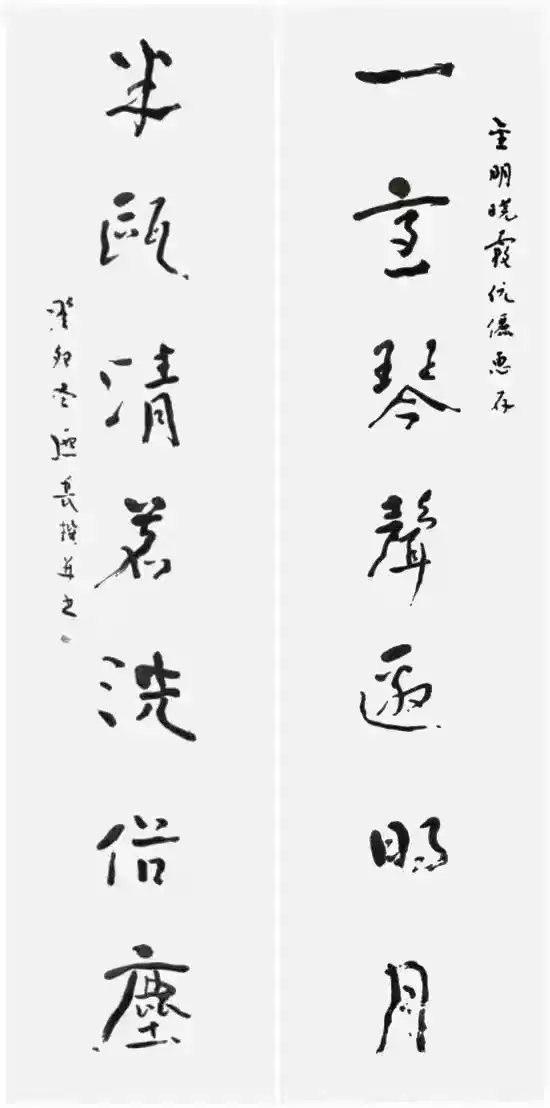 金明曉霞伉儷惠存
一室琴聲邀明月
半甌清茗洗俗塵
癸卯冬長撰并书